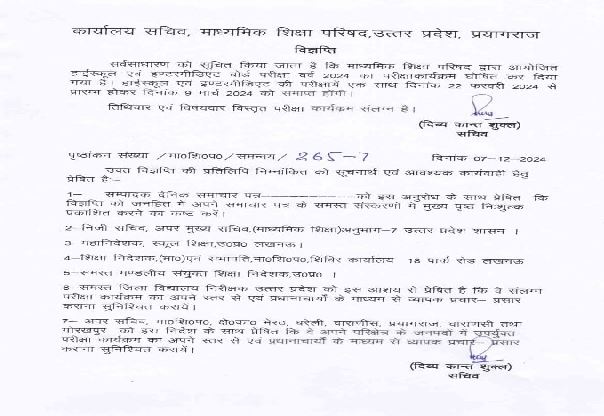 कार्यालय सचिव, माध्यमिक शिक्षा परिषद,उत्तर प्रदेश, प्रयागराज
विज्ञप्ति
सर्वसाधारण को सूचित किया जाता है कि माध्यमिक शिक्षा परिषद द्वारा आयोजित
हाईस्कूल एवं इण्टरमीडिएट बोर्ड परीक्षा वर्ष 2024 का परीक्षाकार्यक्रम घोषित कर दिया
गया है। हाईस्कूल एवं इण्टरमीडिएट की परीक्षायें एक साथ दिनांक 22 फरवरी 2024 से
प्रारम्भ होकर दिनांक 9 मार्च 2024 को समाप्त होंगी।
तिथिवार एवं विषयवार विस्तृत परीक्षा कार्यक्रम संलग्न है।
(दिब्य कान्त शुक्ल)
सचिव
पृष्ठांकन संख्या /मा०शि०प०/समन्वय/ 265-7 दिनांक 07-12-2024
उक्त विज्ञप्ति की प्रतिलिपि निम्नांकित को सूचनार्थ एवं आवश्यक कार्यवाही हेतु
प्रेषित है:-
1- सम्पादक दैनिक समाचार पत्र————को इस अनुरोध के साथ प्रेषित कि
विज्ञप्ति को जनहित में अपने समाचार पत्र के समस्त संस्करणों में मुख्य पृष्ठ निःशुल्क
प्रकाशित करने का कष्ट करें।
2-निजी सचिव, अपर मुख्य सचिव,(माध्यमिक शिक्षा)अनुभाग-7 उत्तर प्रदेश शासन ।
3 महानिदेशक, स्कूल शिक्षा,उ०प्र० लखनऊ।
4-शिक्षा निदेशक,(मा०)एवं सभापति,मा०शि०प०,शिविर कार्यालय 18 पार्क रोड लखनऊ
5-समस्त मण्डलीय संयुक्त शिक्षा निदेशक,उ०प्र० ।
समस्त जिला विद्यालय निरीक्षक उत्तर प्रदेश को इस आशय से प्रेषित है कि वे संलग्न
परीक्षा कार्यक्रम का अपने स्तर से एवं प्रधानाचार्यों के माध्यम से व्यापक प्रचार- प्रसार
कराना सुनिश्चित करायें।
7- अपर सचिव, मा०शि०प०, क्षे०का० मेरठ, बरेली, प्रयागराज, वाराणसी तथा
गोरखपुर को इस निर्देश के साथ प्रेषित कि वे अपने परिक्षेत्र के जनपदों में उपर्युक्त
परीक्षा कार्यक्रम का अपने स्तर से एवं प्रधानाचार्यों के माध्यम से व्यापक प्रचार- प्रसार
कराना सुनिश्चित करायें।
(दिब्य कान्त शुक्ल)
सचिव